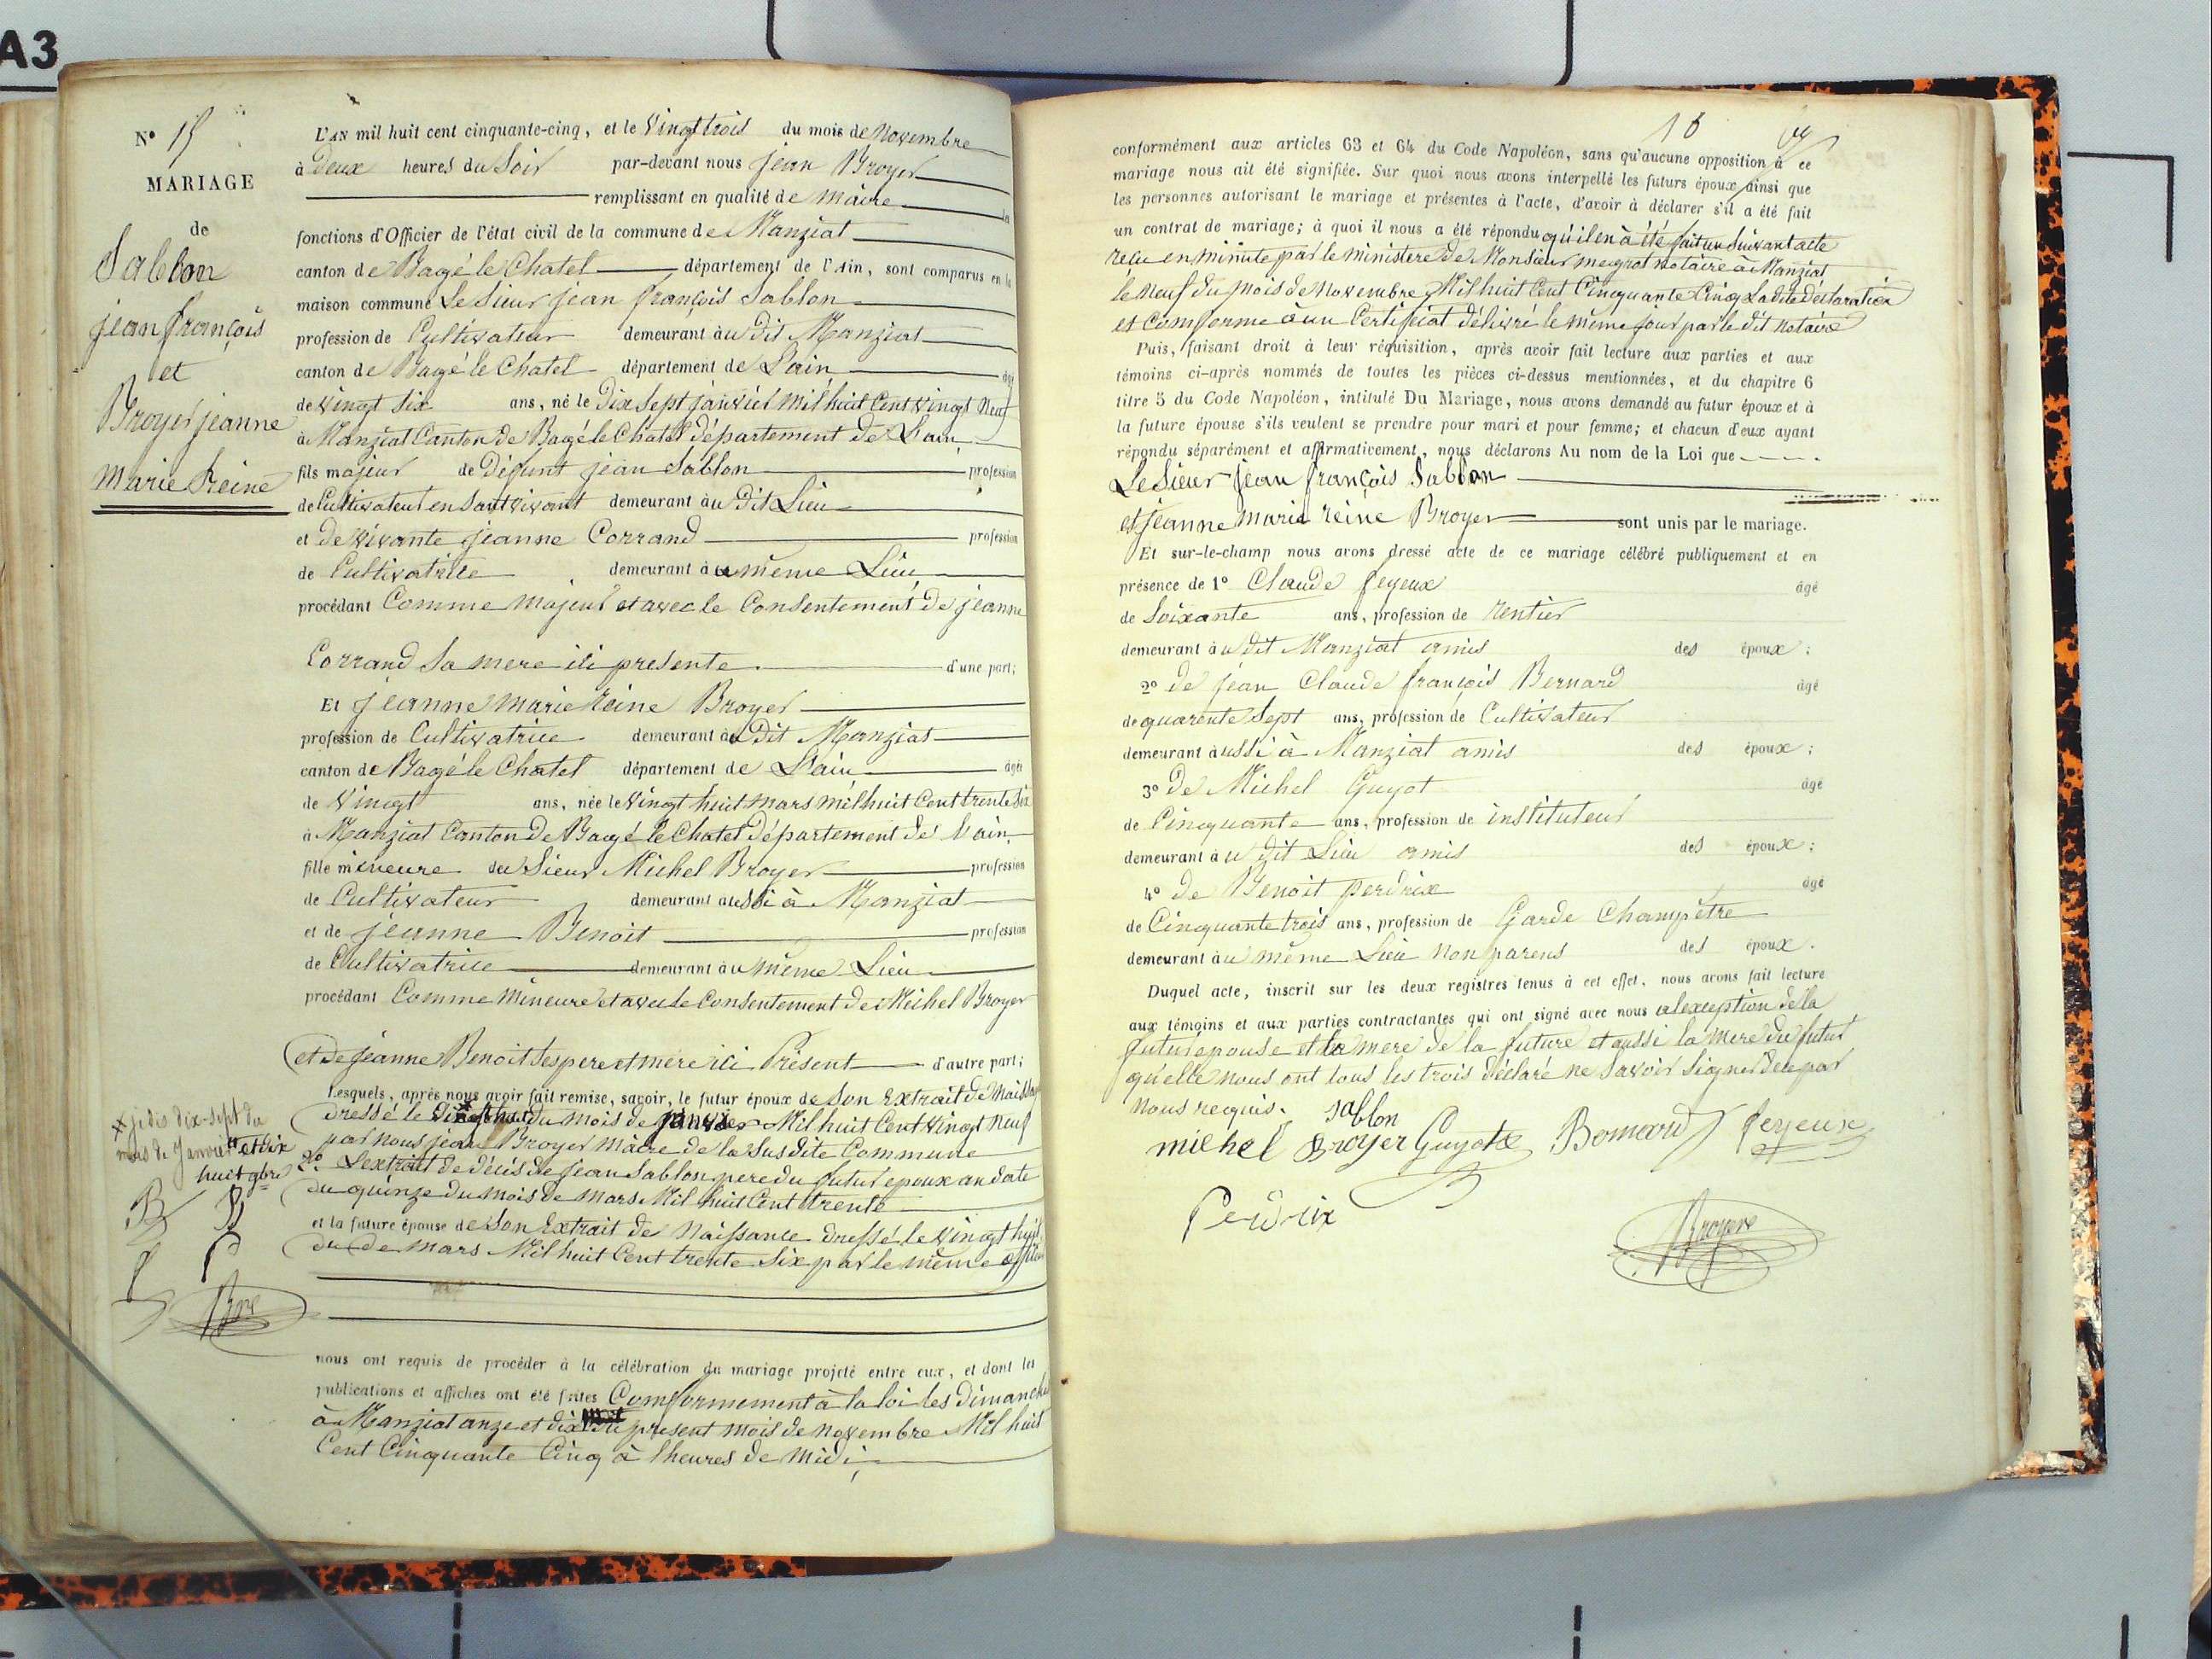 A3
N° 15
MARIAGE
de
Sablon
jean françois
et
Broyer jeanne
marie Reine
L'AN mil huit cent cinquante-cinq, et le Vingt trois du mois de Novembre
à Deux heures du Soir par-devant nous jean Broyer
remplissant en qualité de maire la
fonctions d'Officier de l'état civil de la commune de Manziat
canton de Bagé le Chatel département de l'Ain, sont comparus en la
maison commune Le Sieur jean françois Sablon
profession de Cultivateur demeurant àu Dit Manziat
canton de Bagé le Chatel département de L'ain âgé
de Vingt Six ans, né le Dix Sept janvier Mil huit Cent Vingt Neuf
à Manziat Canton de Bagé le Chatel département de L'ain
fils majeur de Défunt jean Sablon profession
de Cultivateur en Sont vivant demeurant àu Dit Lieu
et de vivante jeanne Corrand profession
de Cultivatrice demeurant àu même Lieu
procédant Comme Majeur et avec le Consentement de jeanne
Corrand Sa mere ici presente d'une part;
Et jeanne marie Reine Broyer
profession de Cultivatrice demeurant àu Dit Manziat
canton de Bagé le Chatel département de L'ain âgée
de Vingt ans, née le Vingt huit mars mil huit Cent trente Six
à Manziat Canton de Bagé le Chatel département de L'ain
fille mineure du Sieur Michel Broyer profession
de Cultivateur demeurant aussi à Manziat
et de jeanne Benoit profession
de Cultivatrice demeurant àu même Lieu
procédant Comme Mineure et avec le Consentement de Michel Broyer
et de jeanne Benoit Ses pere et mere ici Présent d'autre part;
Lesquels, après nous avoir fait remise, savoir, le futur époux de Son Extrait de Naissance
dressé le du mois de janvier Mil huit Cent Vingt Neuf
par nous jean Broyer Maire de la Susdite Commune
2° L'extrait de décès de jean Sablon pere du futur epoux en date
du quinze du mois de mars Mil huit Cent trente
et la future épouse de Son Extrait de Naissance dressé le Vingt huit
du de mars Mil huit Cent trente Six par le même officier
x je dis dix-sept du
mois de Janvier et dix
huit 9bre
nous ont requis de procéder à la célébration du mariage projeté entre eux, et dont les
publications et affiches ont été faites Comformement à la loi les Dimanches
à Manziat onze et dix du present mois de Novembre Mil huit
Cent Cinquante Cinq à lheures de Midi
16
conformément aux articles 63 et 64 du Code Napoléon, sans qu'aucune opposition à ce
mariage nous ait été signifiée. Sur quoi nous avons interpellé les futurs époux ainsi que
les personnes autorisant le mariage et présentes à l'acte, d'avoir à déclarer s'il a été fait
un contrat de mariage; à quoi il nous a été répondu qu'il en à été fait un Suivant acte
reçu en minute par le ministere de Monsieur Meygrot notaire à Manziat
le Neuf du Mois de Novembre Mil huit Cent Cinquante Cinq La dite déclaration
et Comforme à un Certificat délivré le même jour par le dit notaire
Puis, faisant droit à leur réquisition, après avoir fait lecture aux parties et aux
témoins ci-après nommés de toutes les pièces ci-dessus mentionnées, et du chapitre 6
titre 5 du Code Napoléon, intitulé Du Mariage, nous avons demandé au futur époux et à
la future épouse s'ils veulent se prendre pour mari et pour femme; et chacun d'eux ayant
répondu séparément et affirmativement, nous déclarons Au nom de la Loi que
Le Sieur jean françois Sablon
et jeanne marie reine Broyer sont unis par le mariage.
Et sur-le-champ nous avons dressé acte de ce mariage célébré publiquement et en
présence de 1° Claude feyeux âgé
de Soixante ans, profession de Rentier
demeurant àu dit Manziat amis des époux;
2° de jean Claude françois Bernard âgé
de quarente Sept ans, profession de Cultivateur
demeurant àussi à Manziat amis des époux;
3° de Michel Guyot âgé
de Cinquante ans, profession de instituteur
demeurant àu dit Lieu amis des époux;
4° de Benoit perdrix âgé
de Cinquante trois ans, profession de Garde Champêtre
demeurant àu même Lieu Non parens des époux.
Duquel acte, inscrit sur les deux registres tenus à cet effet, nous avons fait lecture
aux témoins et aux parties contractantes qui ont signé avec nous alexception de la
future epouse et la mere de la future et aussi la mere du futur
qu'elle nous ont tous les trois déclaré ne Savoir Signer de ce par
Nous requis. sablon
michel Broyer Guyot Bernard feyeux
Perdrix
Broyer